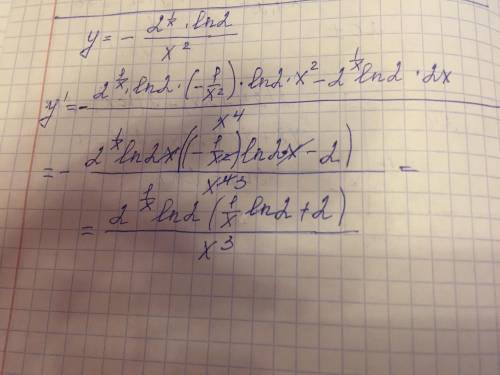 y = - 2^(1/x) · ln2 / x^2
y' = - (2^(1/x) · ln2 · (-1/x^2) · ln2 · x^2 - 2^(1/x) ln2 · 2x) / x^4
= - 2^(1/x) ln2 x((-1/x^2) ln2 x - 2) / x^4 3 =
= 2^(1/x) ln2 (1/x ln2 + 2) / x^3